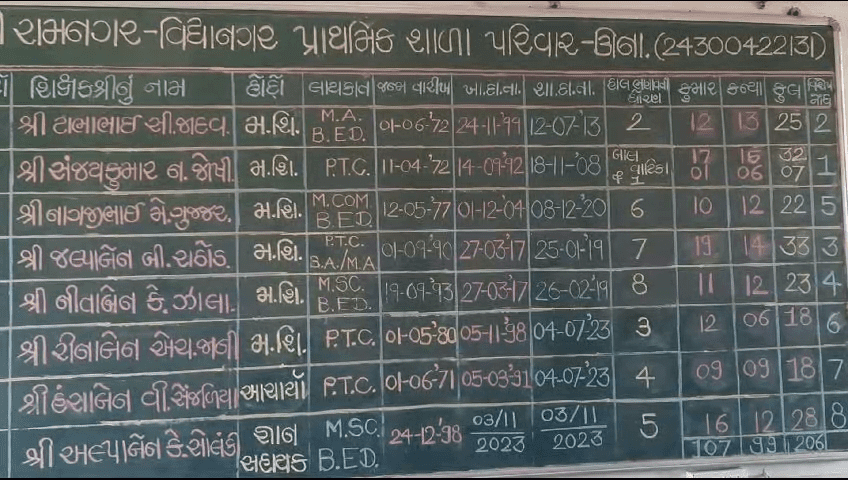 રામનગર-વિદ્યાનગર પ્રાથમિક શાળા પરિવાર-ઊના. (24300422131)
શિક્ષકશ્રીનું નામ હોદ્દો લાયકાત જન્મ તારીખ ખા.દા.તા. શા.દા.તા. હાલ ધોરણ કુમાર કન્યા કુલ વિશેષ નોંધ
શ્રી ટાભાભાઈ સી.જાદવ. મ.શિ. M.A. B.ED. 01-06-'72 24-11-'99 12-07-'13 2 12 13 25 2
શ્રી સંજયકુમાર ન.જોષી. મ.શિ. P.T.C. 11-04-'72 14-09-'92 18-11-'08 બાલ વાટિકા 1 17 01 16 06 32 07 1
શ્રી નાગજીભાઈ મે.ગુજ્જર. મ.શિ. M.COM. B.ED. 12-05-'77 01-12-'04 08-12-'20 6 10 12 22 5
શ્રી જલ્પાબેન બી.રાઠોડ. મ.શિ. P.T.C. B.A./M.A 01-09-'90 27-03-'17 25-01-'19 7 19 14 33 3
શ્રી નીતાબેન કે.ઝાલા. મ.શિ. M.SC. B.ED. 19-09-'93 27-03-'17 26-02-'19 8 11 12 23 4
શ્રી રીનાબેન એચ.જાની મ.શિ. P.T.C. 01-05-'80 05-11-'98 04-07-'23 3 12 06 18 6
શ્રી હંસાબેન વી.સેંજળિયા આચાર્યા P.T.C. 01-06-'71 05-03-'91 04-07-'23 4 09 09 18 7
શ્રી અલ્પાબેન કે.સોલંકી જ્ઞાન સહાયક M.SC. B.ED. 24-12-'98 03/11 2023 03/11 2023 5 16 12 28 8
107 99 206